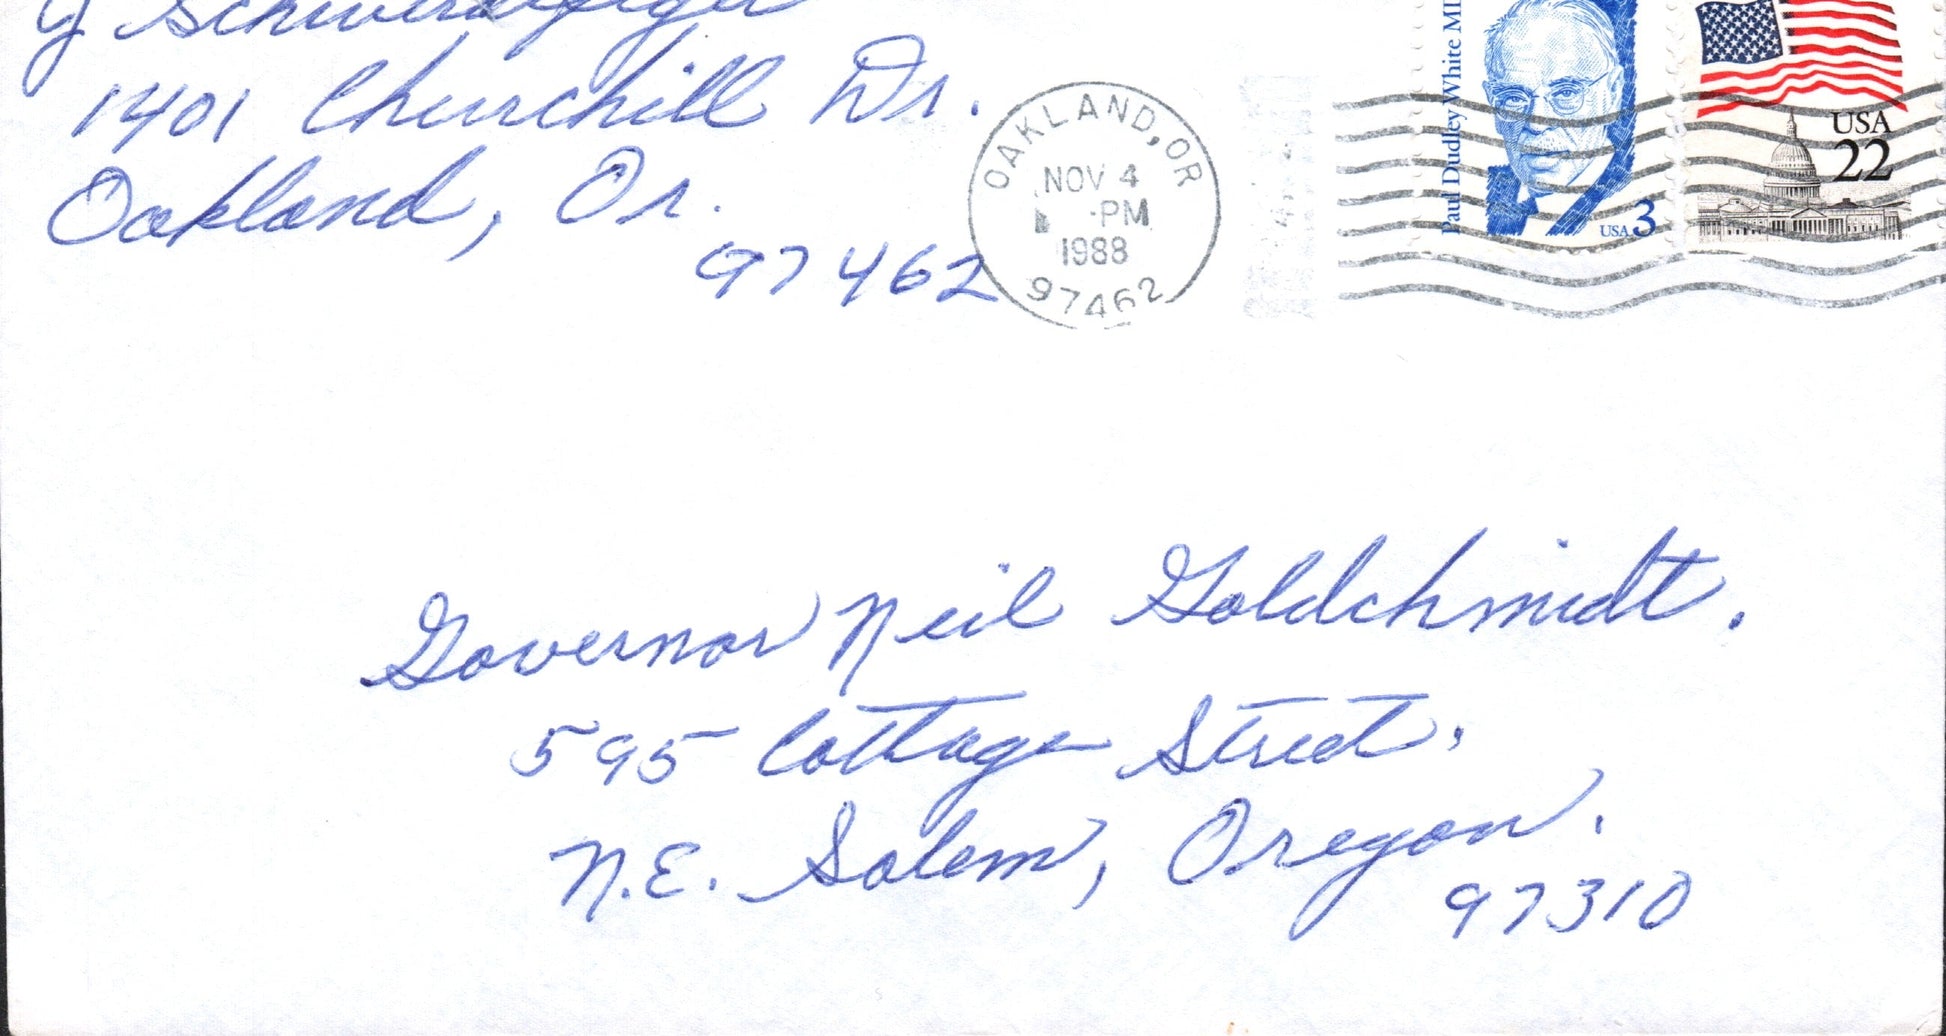 1401 Churchill Dr.
Oakland, Or.
97462
OAKLAND, OR
NOV 4
PM
1988
97462
Paul Dudley White MD
USA 3
USA
22
Governor Neil Goldchmidt.
595 Cottage Street.
N.E. Salem, Oregon.
97310